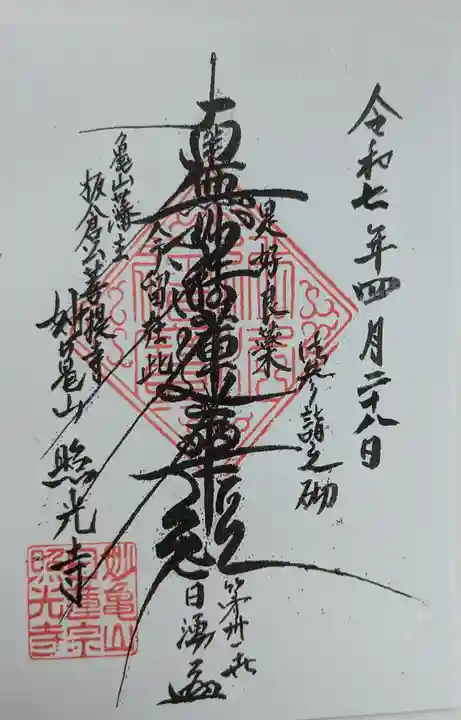 令和七年四月二十八日
御参詣之砌
是好良薬
南無妙法蓮華経
今留在此
第丗一世
日湧
亀山藩主
板倉公菩提寺
妙亀山 照光寺
妙亀山
日蓮宗
照光寺